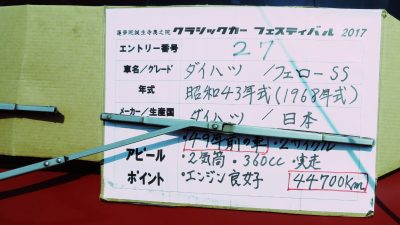 蓮華院誕生寺奥之院 クラシックカー フェスティバル 2017
エントリー番号 27
車名/グレード ダイハツ /フェローSS
年式 昭和43年式(1968年式)
メーカー/生産国 ダイハツ / 日本
アピール ポイント
・49年前の車・2サイクル
・2気筒・360cc ・実走
・エンジン良好 44700Km